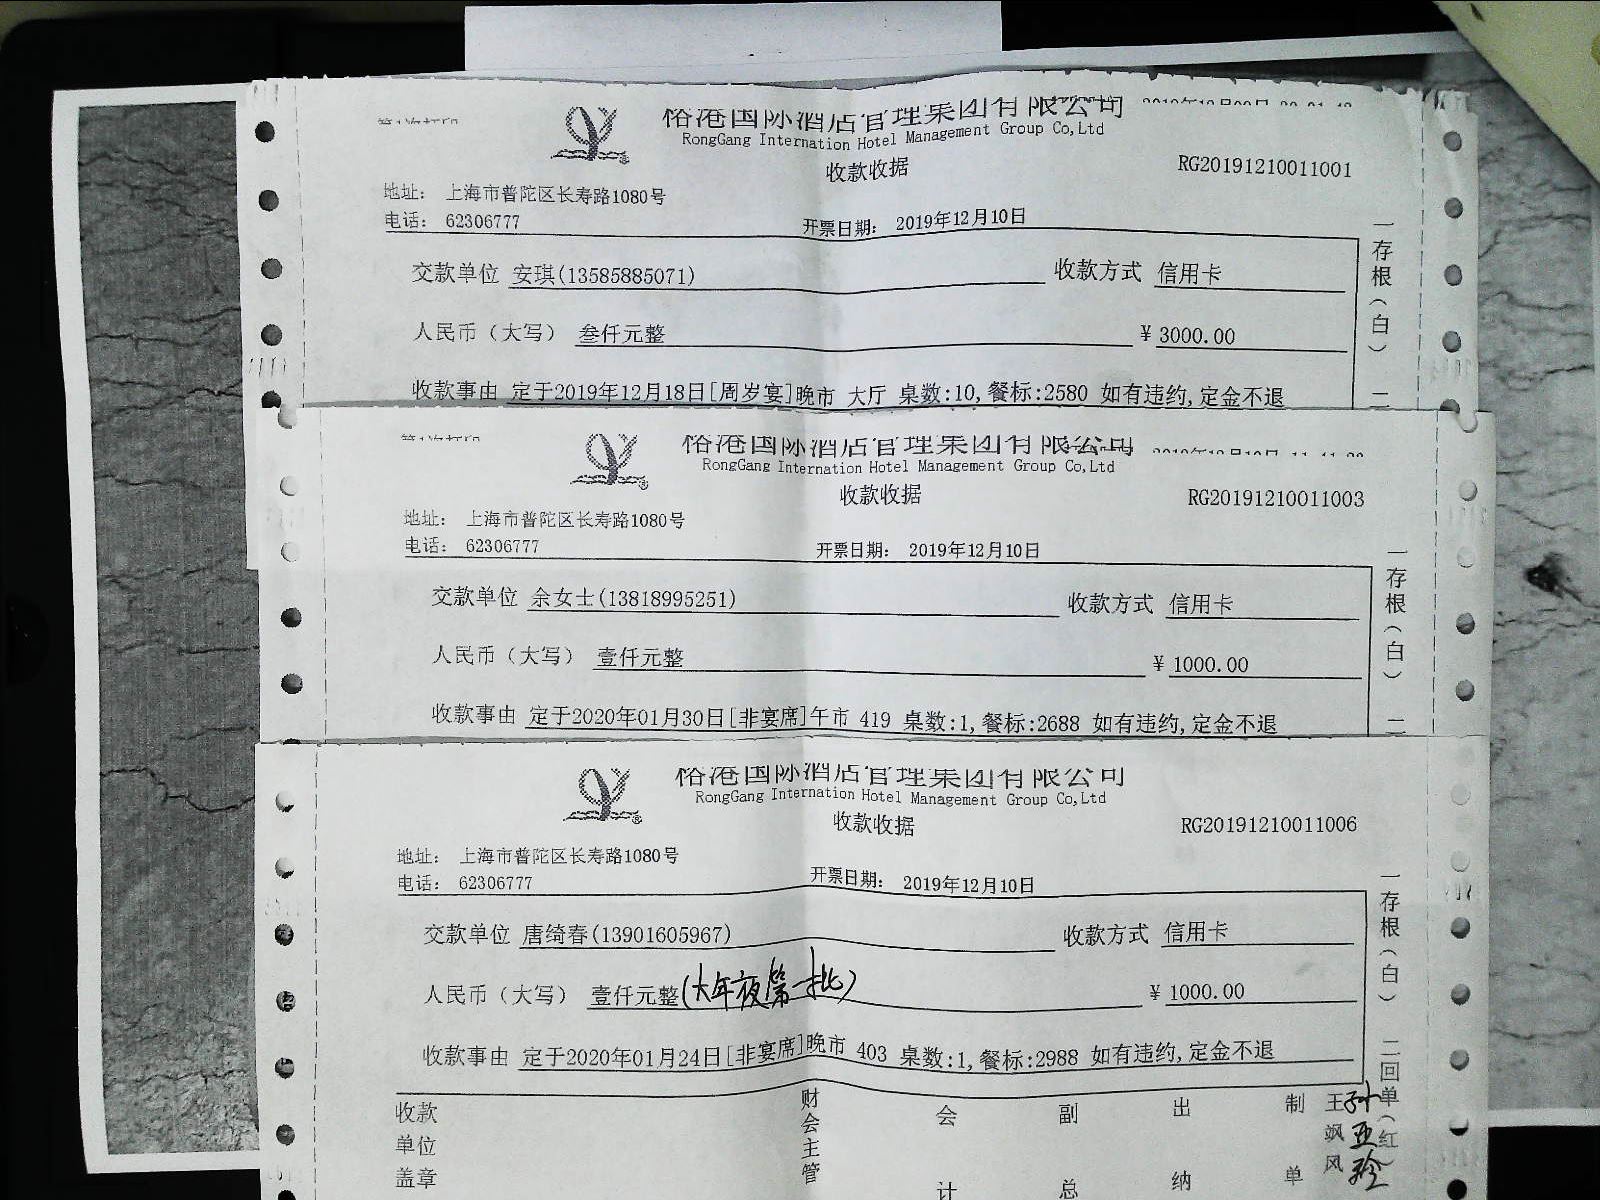 裕港国际酒店管理集团有限公司
RongGang Internation Hotel Management Group Co,Ltd
收款收据 RG20191210011001
地址: 上海市普陀区长寿路1080号
电话: 62306777 开票日期: 2019年12月10日
交款单位 安琪(13585885071) 收款方式 信用卡
人民币（大写） 叁仟元整 ¥ 3000.00
收款事由 定于2019年12月18日[周岁宴]晚市 大厅 桌数:10,餐标:2580 如有违约,定金不退
一存根（白） 二
裕港国际酒店管理集团有限公司
RongGang Internation Hotel Management Group Co,Ltd
收款收据 RG20191210011003
地址: 上海市普陀区长寿路1080号
电话: 62306777 开票日期: 2019年12月10日
交款单位 余女士(13818995251) 收款方式 信用卡
人民币（大写） 壹仟元整 ¥ 1000.00
收款事由 定于2020年01月30日[非宴席]午市 419 桌数:1,餐标:2688 如有违约,定金不退
一存根（白） 二
裕港国际酒店管理集团有限公司
RongGang Internation Hotel Management Group Co,Ltd
收款收据 RG20191210011006
地址: 上海市普陀区长寿路1080号
电话: 62306777 开票日期: 2019年12月10日
交款单位 唐绮春(13901605967) 收款方式 信用卡
人民币（大写） 壹仟元整(大年夜第一批) ¥ 1000.00
收款事由 定于2020年01月24日[非宴席]晚市 403 桌数:1,餐标:2988 如有违约,定金不退
一存根（白） 二回单（红
收款单位盖章 财会主管 会计 副总 出纳 制单 王飒风 孙亚玲